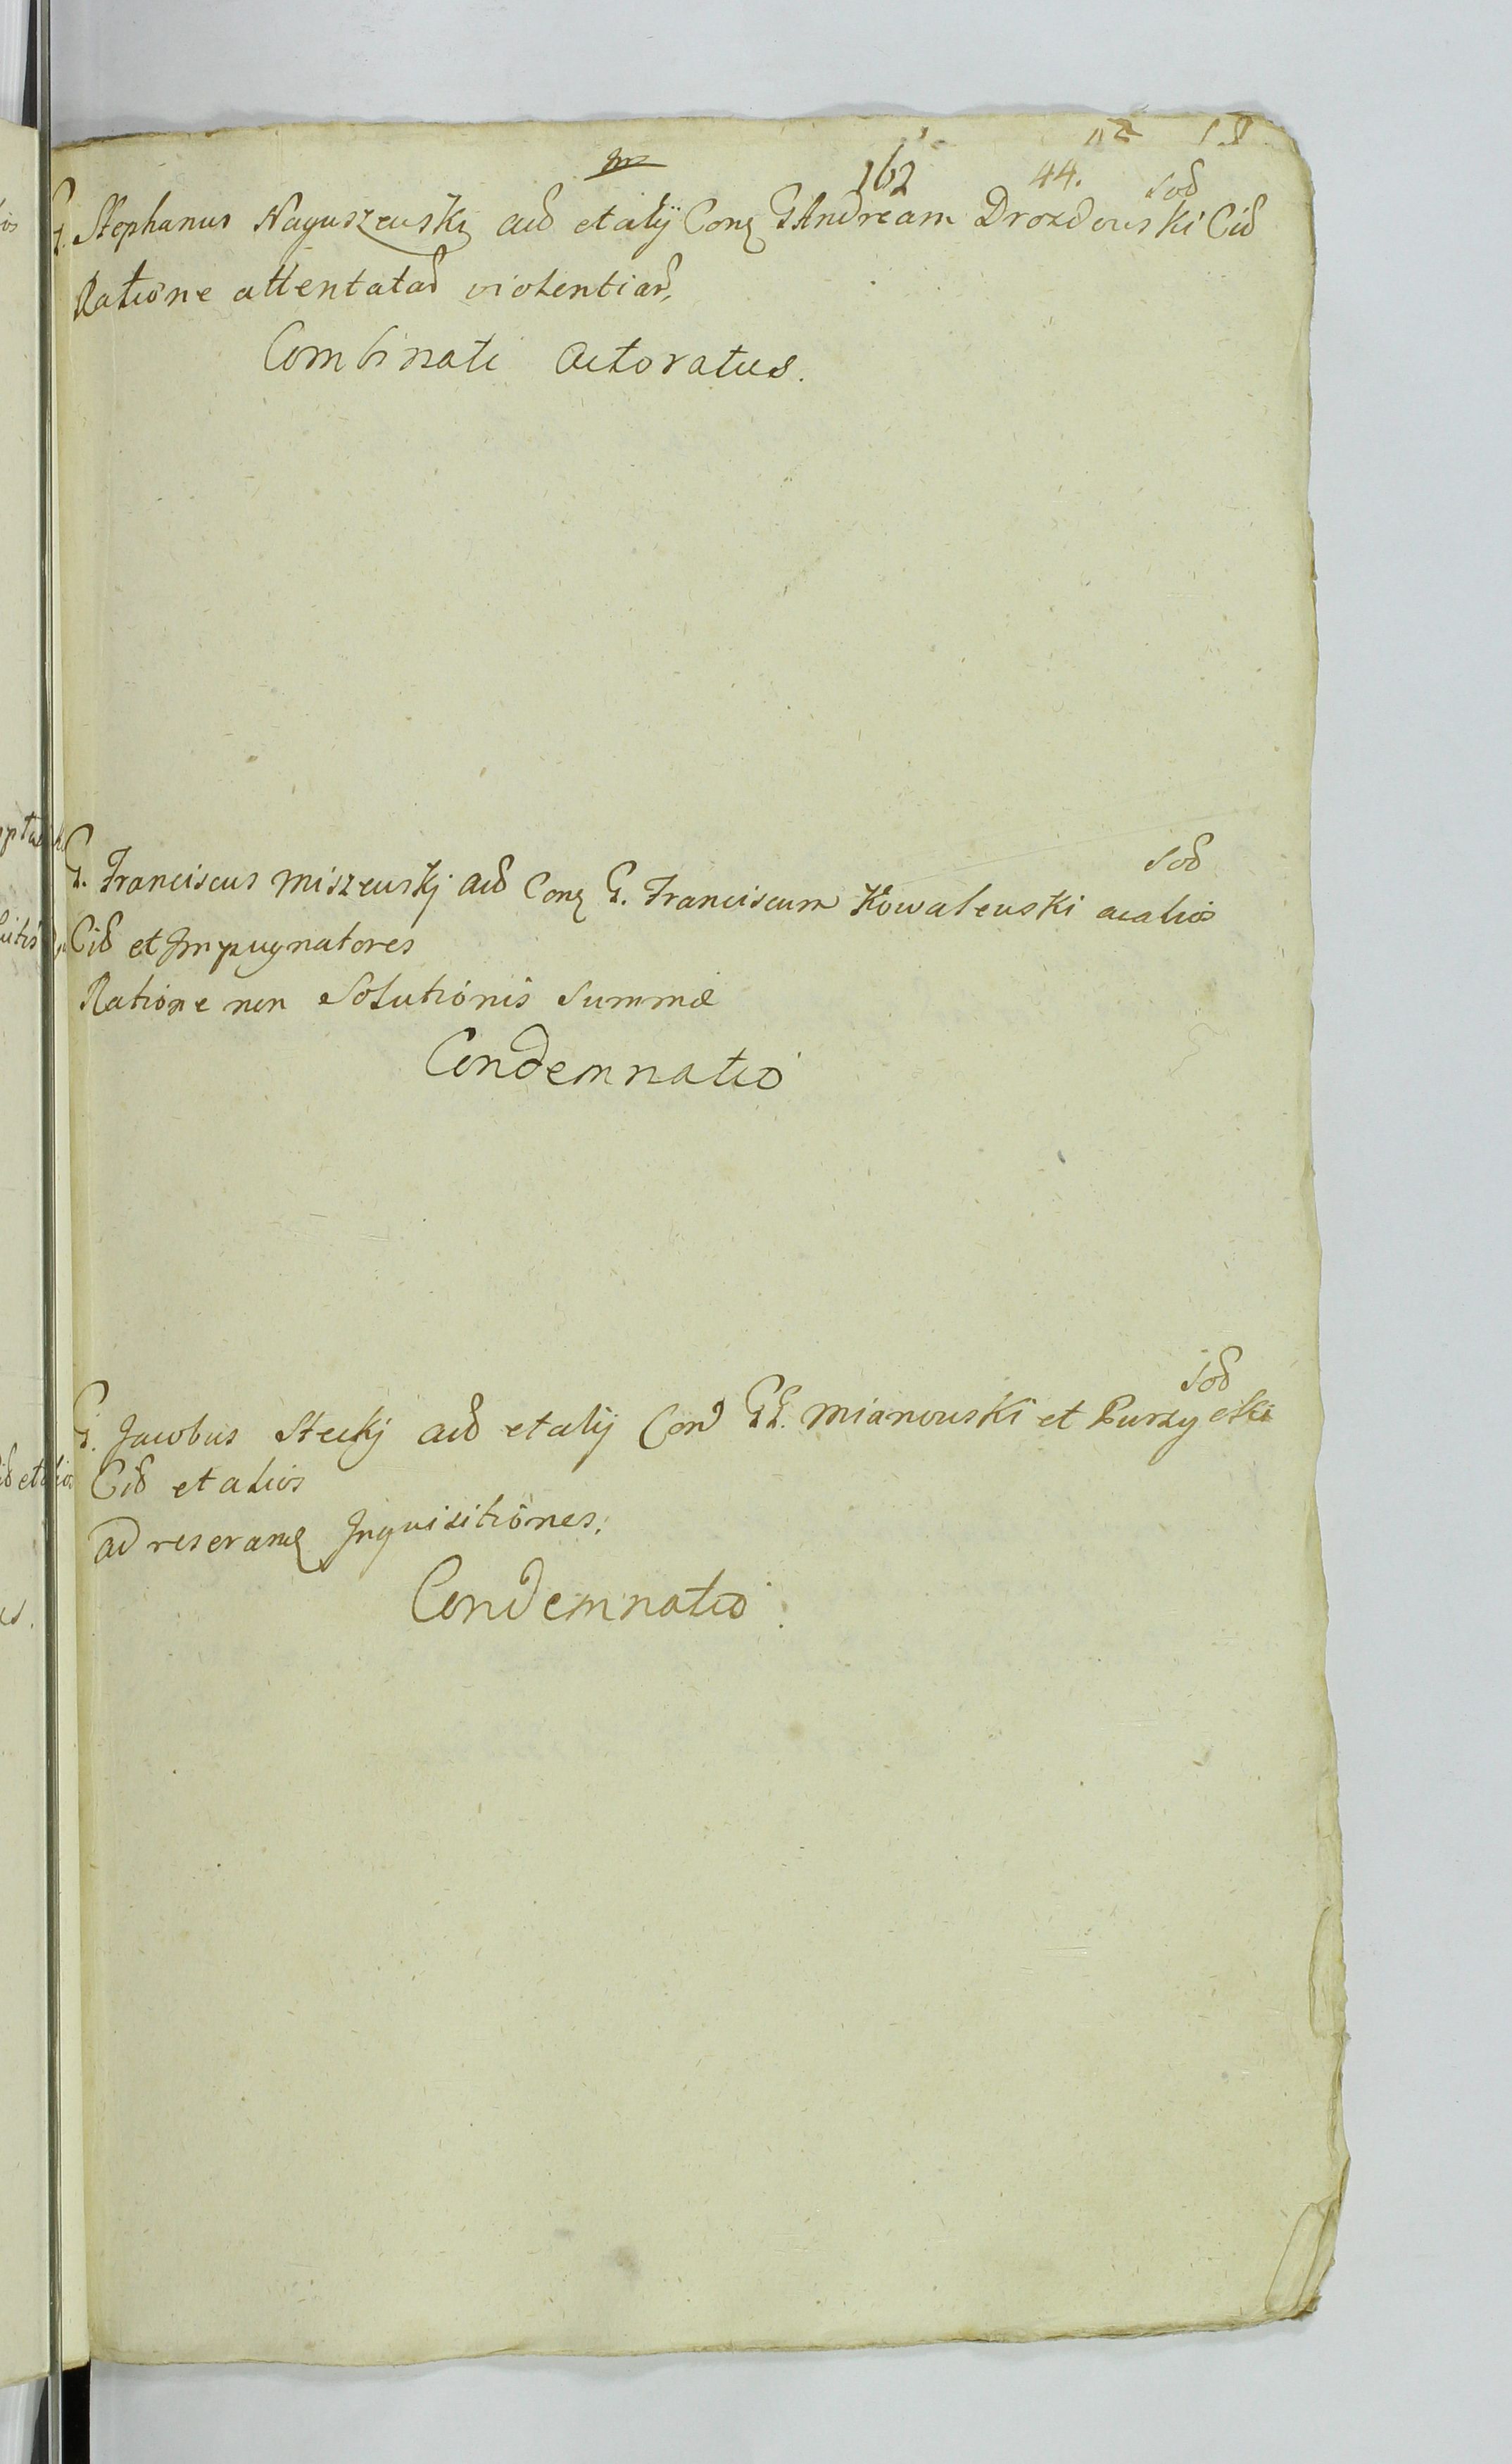 162 44. Sod
G. Stephanus Naguszewski acd et alij Conq G Andream Drozdowski Cid
Ratione attentatad violentiad,
Combinati actoratus.
Sod
G. Franciscus Miszewskj acd Conq G. Franciscum Kowalewski ac alios
Cid et Impugnatores
Ratione non Solutionis Summæ
Condemnatio
Sod
G. Jacobus Steckj acd et alij Con GG. Mianowski et
Cid et alios
ad reseranq Inquisitiones.
Condemnatio.